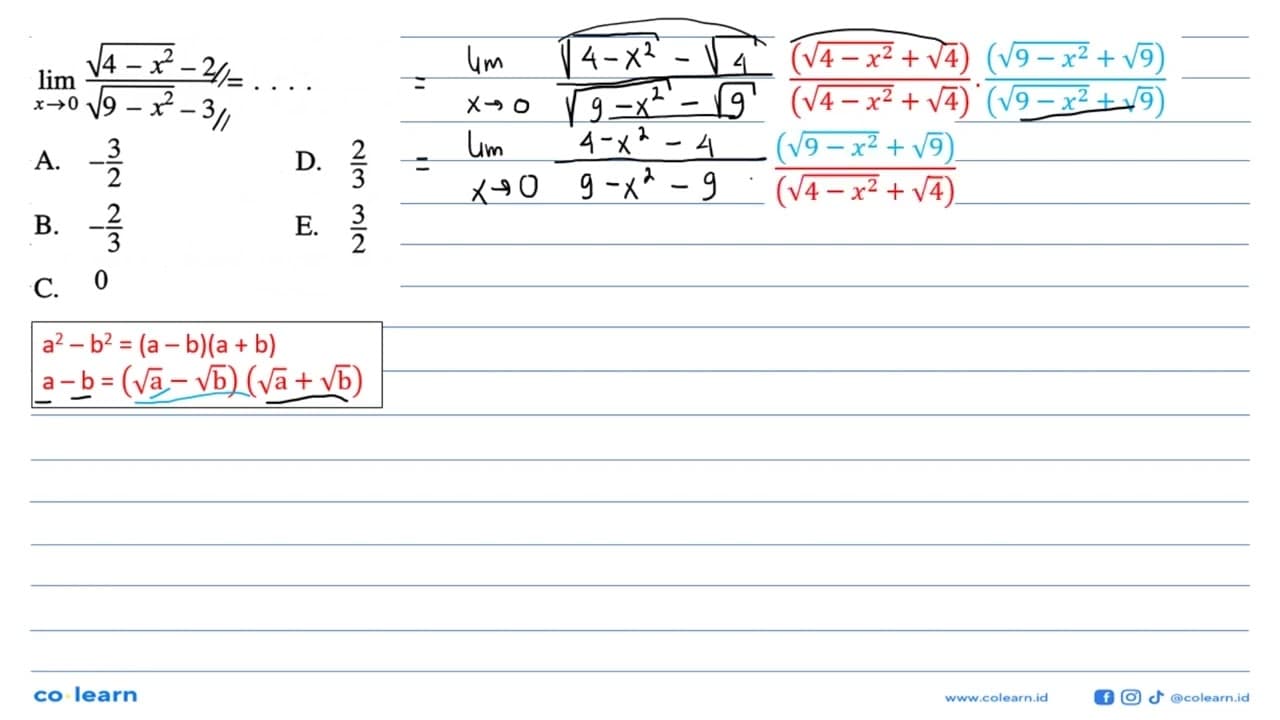 lim x→0 (√(4 − x²) − 2)/(√(9 − x²) − 3) = . . . .
A. −3/2
D. 2/3
B. −2/3
E. 3/2
C. 0
a² − b² = (a − b)(a + b)
a − b = (√a − √b) (√a + √b)
= lim x→0 (√(4−x²) − √4)/(√(9−x²) − √9) (√(4 − x²) + √4)/(√(4 − x²) + √4) · (√(9 − x²) + √9)/(√(9 − x²) + √9)
= lim x→0 (4−x² − 4)/(9−x² − 9) · (√(9 − x²) + √9)/(√(4 − x²) + √4)
co learn
www.colearn.id
@colearn.id